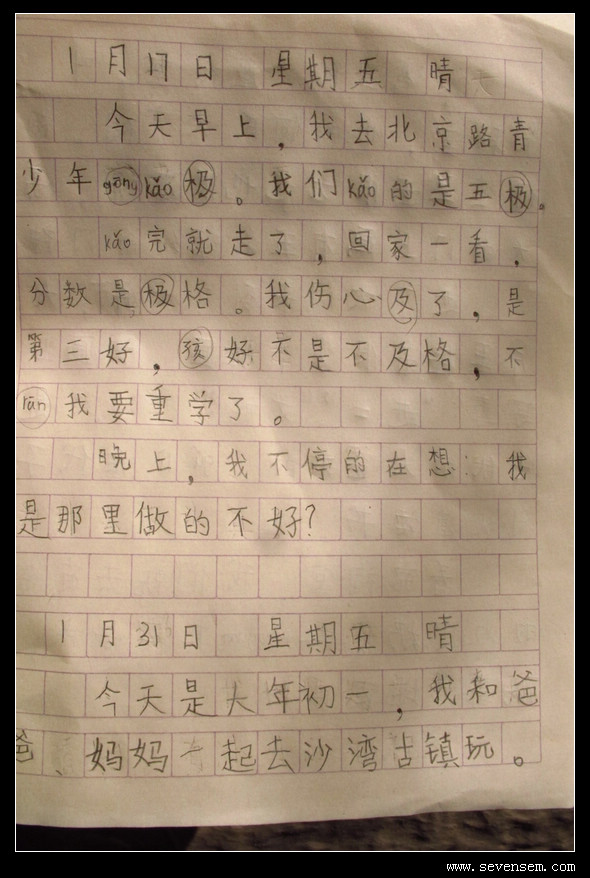 1月17日 星期五 晴
今天早上，我去北京路青
少年gōng kǎo极。我们kǎo的是五极。
kǎo完就走了，回家一看，
分数是极格。我伤心及了，是
第三好，孩好不是不及格，不
rán我要重学了。
晚上，我不停的在想：我
是那里做的不好？
1月31日 星期五 晴
今天是大年初一，我和爸
爸、妈妈一起去沙湾古镇玩。
www.sevensem.com